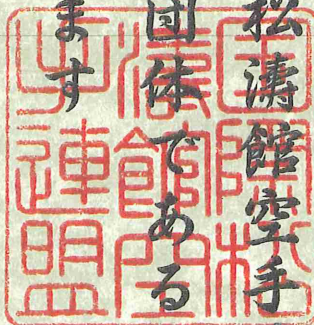 松濤館空手
団体である
ます
國際松
濤館空
手連盟